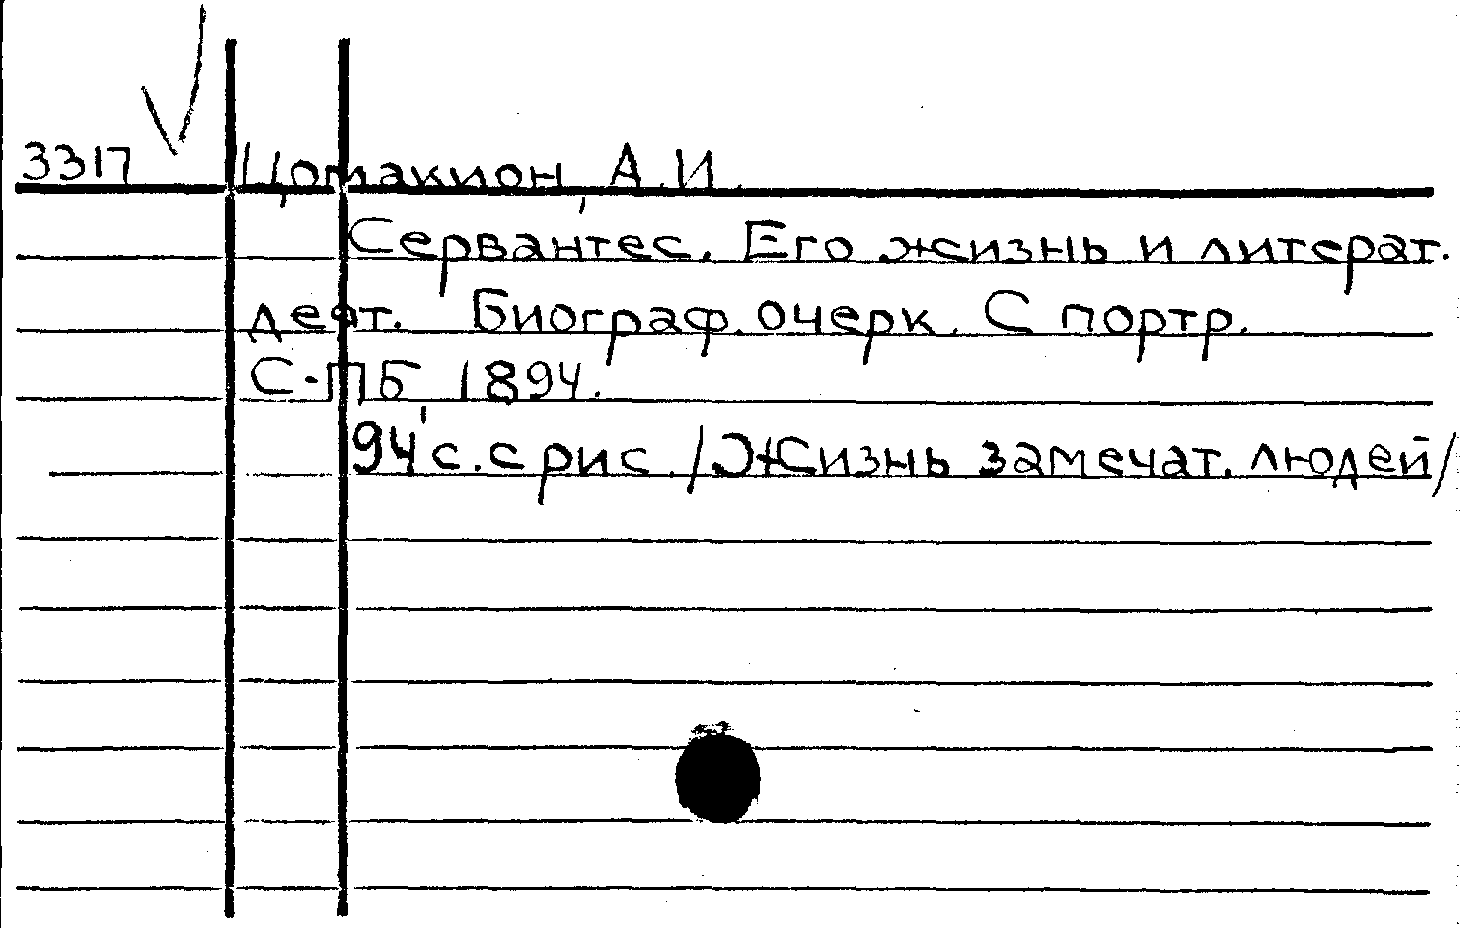 3317 Цомакион, А.И.
Сервантес. Его жизнь и литерат.
деят. Биограф. очерк. С портр.
С-ПБ, 1894.
94 с. с рис. /Жизнь замечат. людей/